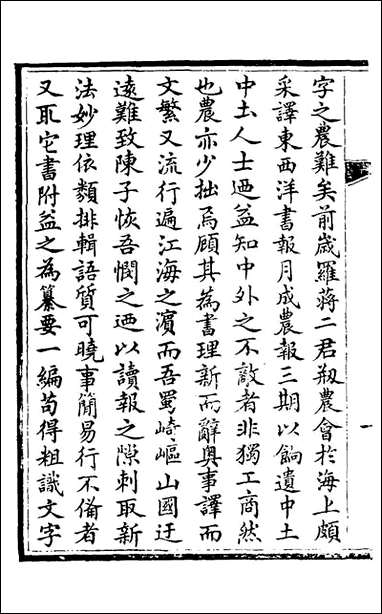 字之農難矣前嵗羅蔣二君剏農會於海上頗
采譯東西洋書報月成農報三期以餉遺中土
中土人士迺益知中外之不敵者非獨工商然
也農亦少拙焉顧其為書理新而辭奥事譯而
文繁又流行遍江海之濵而吾蜀崎嶇山國迂
遠難致陳子恢吾憫之迺以讀報之隙刺取新
法妙理依類排輯語質可曉事簡易行不備者
又取它書附益之為纂要一編苟得粗識文字
一